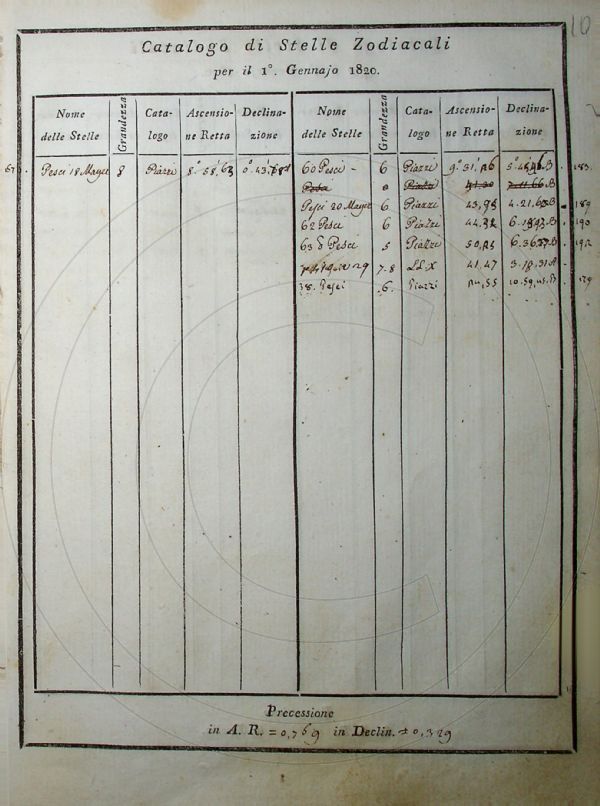 10
Catalogo di Stelle Zodiacali
per il 1°. Gennajo 1820.
Nome delle Stelle
Grandezza
Cata-logo
Ascensio-ne Retta
Declina-zione
Nome delle Stelle
Grandezza
Cata-logo
Ascensio-ne Retta
Declina-zione
Pesci 18 Mayer 8 Piazzi 8° 58', 63 0° 43,
60 Pesci - 6 Piazzi 9° 31', 183.
Pesci 20 Mayer 6 Piazzi 43, 95 4. 21. B 189
62 Pesci 6 Piazzi 44. 6. B 190
63 δ Pesci 5 Piazzi 50, 6. B 192
29 7.8 LL.X 41,47 3.18,31 A
38. Pesci 6. Piazzi 55 10.59, B 129
Precessione
in A. R. = 0,769 in Declin. = 0,329